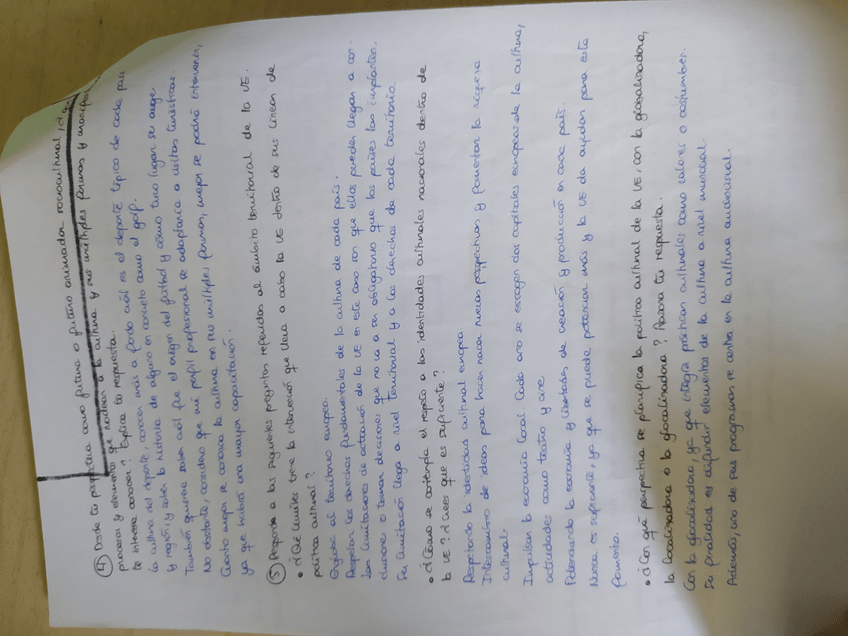 ④ Desde tu perspectiva como futura o futuro animador sociocultural, ¿d qué
procesos y elementos que rodean a la cultura y sus múltiples formas y manifes
te interesa conocer? Explica tu respuesta.
la cultura del deporte, conocer más a fondo cuál es el deporte típico de cada país
y región, y saber la historia de alguno en concreto como el golf.
También quisiera saber cuál fue el origen del futbol y cómo tuvo lugar su auge
No obstante, considero que mi perfil profesional se adaptaría a visitas turísticas.
Cuanto mejor se conozca la cultura en sus múltiples formas, mejor se podrá intervenir,
ya que habrá una mayor capacitación.
⑤ Responde a las siguientes preguntas referidas al ámbito territorial de la UE.
• ¿Qué límites tiene la intervención que lleva a cabo la UE dentro de sus líneas de
política cultural?
Engloba al territorio europeo.
Respetar los derechos fundamentales de la cultura de cada país.
Las limitaciones de actuación de la UE en este caso son que ellos pueden llegar a con-
clusiones o tomar decisiones que no va a ser obligatorio que los países las implanten.
Su limitación llega a nivel territorial y a los derechos de cada territorio.
• ¿Cómo se contempla el respeto a las identidades culturales nacionales dentro de
la UE? ¿Crees que es suficiente?
Respetando la identidad cultural europea
Intercambio de ideas para hacer nacer nuevas perspectivas y fomentar la riqueza
cultural.
Impulsan la economía local. Cada año se escogen dos capitales europeas de la cultura,
actividades como teatro y cine.
Potenciando la economía y libertades de creación y producción en cada país.
Nunca es suficiente, ya que se puede potenciar más y la UE da ayudas para este
fomento.
• ¿Con qué perspectiva se planifica la política cultural de la UE, con la globalizadora,
la localizadora o la glocalizadora? Razona tu respuesta.
Con la glocalizadora, ya que integra prácticas culturales como valores o costumbres.
Su finalidad es difundir elementos de la cultura a nivel mundial.
Además, uno de sus programas se centra en la cultura audiovisual.